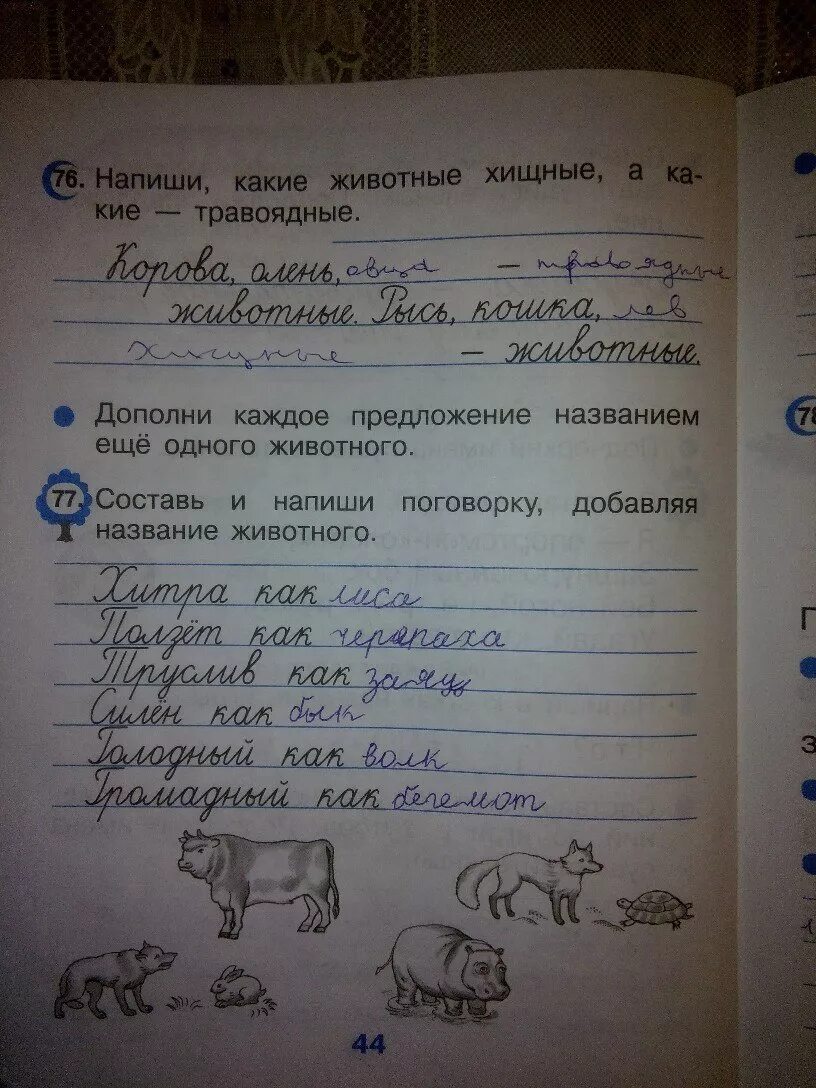 76. Напиши, какие животные хищные, а ка-
кие — травоядные.
Корова, олень, овца — травоядные
животные. Рысь, кошка, лев
хищные — животные.
Дополни каждое предложение названием
ещё одного животного.
77. Составь и напиши поговорку, добавляя
название животного.
Хитра как лиса
Ползёт как черепаха
Труслив как заяц
Силён как бык
Голодный как волк
Громадный как бегемот
44
78